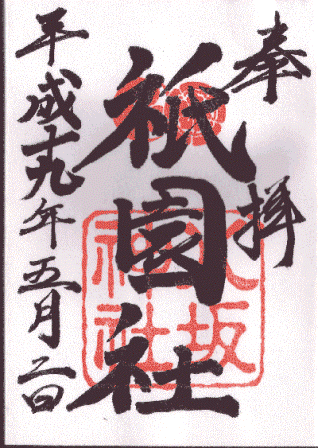 奉拝
祇園社
八坂
神社
平成十九年五月二日